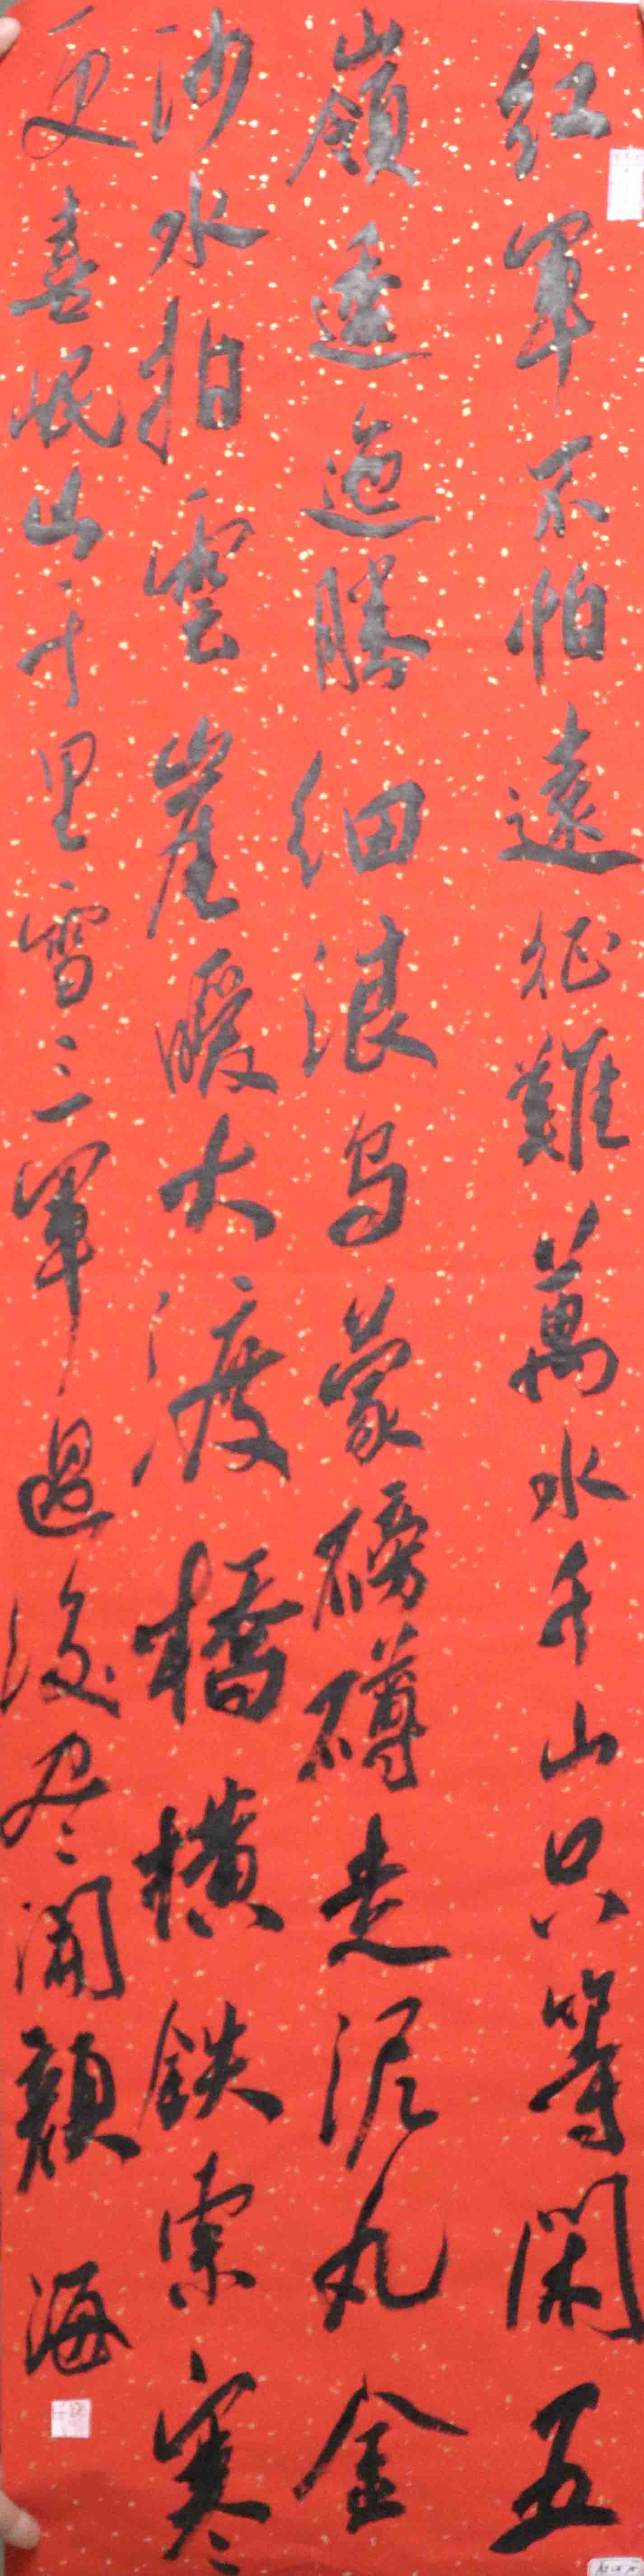 紅軍不怕遠征難萬水千山只等閑五
嶺逶迤騰細浪乌蒙磅礴走泥丸金
沙水拍雲崖暖大渡橋橫鉄索寒
更喜岷山千里雪三軍過後尽開顏 海